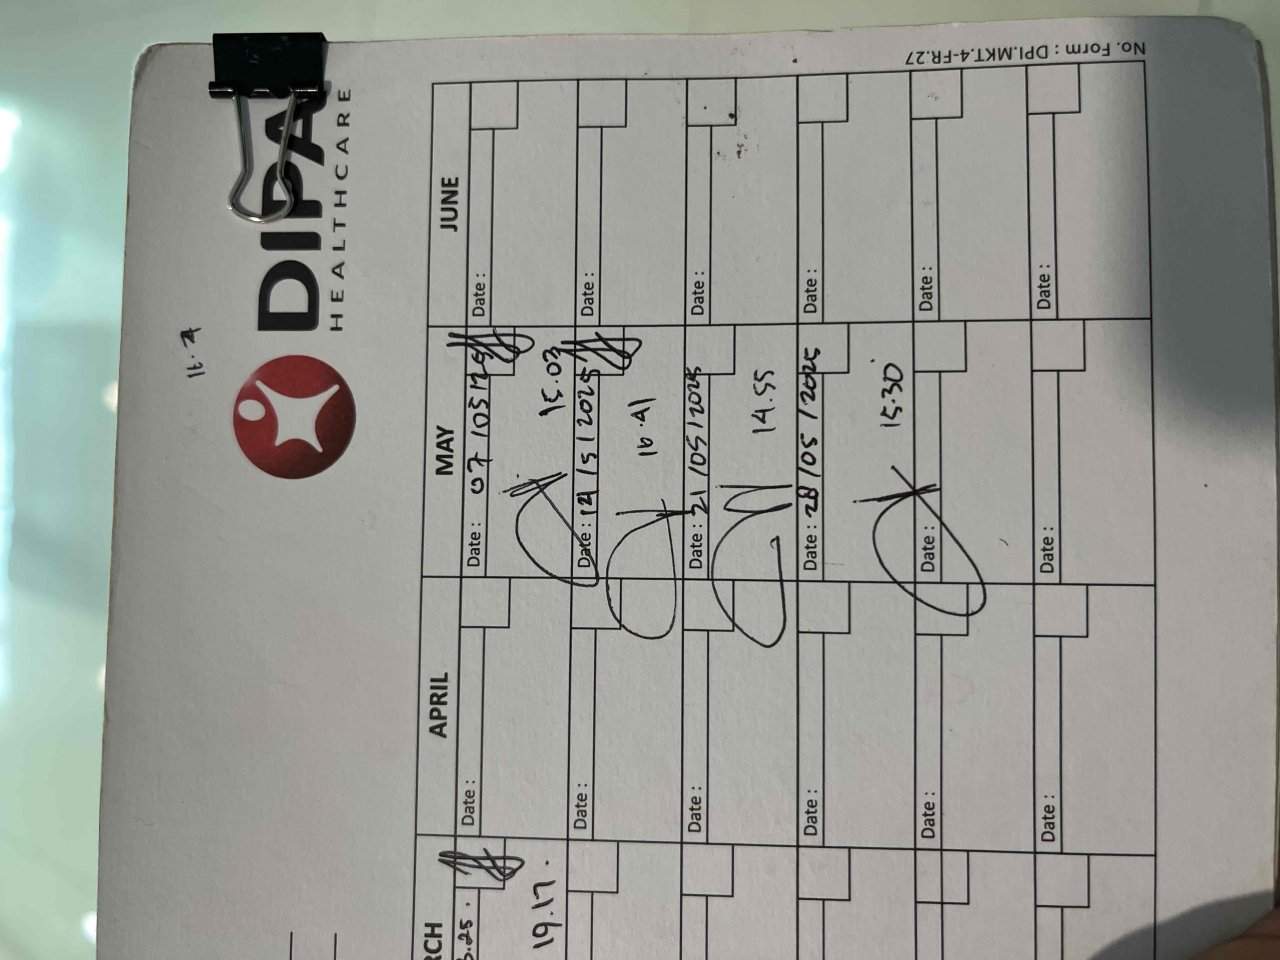 16.4
DIPA
HEALTHCARE
No. Form : DPI.MKT.4-FR.27
RCH
APRIL
MAY
JUNE
3.25.
Date :
Date : 07/05/25
Date :
19.17.
15.03
Date :
Date : 14/5/2025
Date :
16.41
Date :
Date : 21/05/2025
Date :
14.55
Date :
Date : 28/05/2025
Date :
15.30
Date :
Date :
Date :
Date :
Date :
Date :